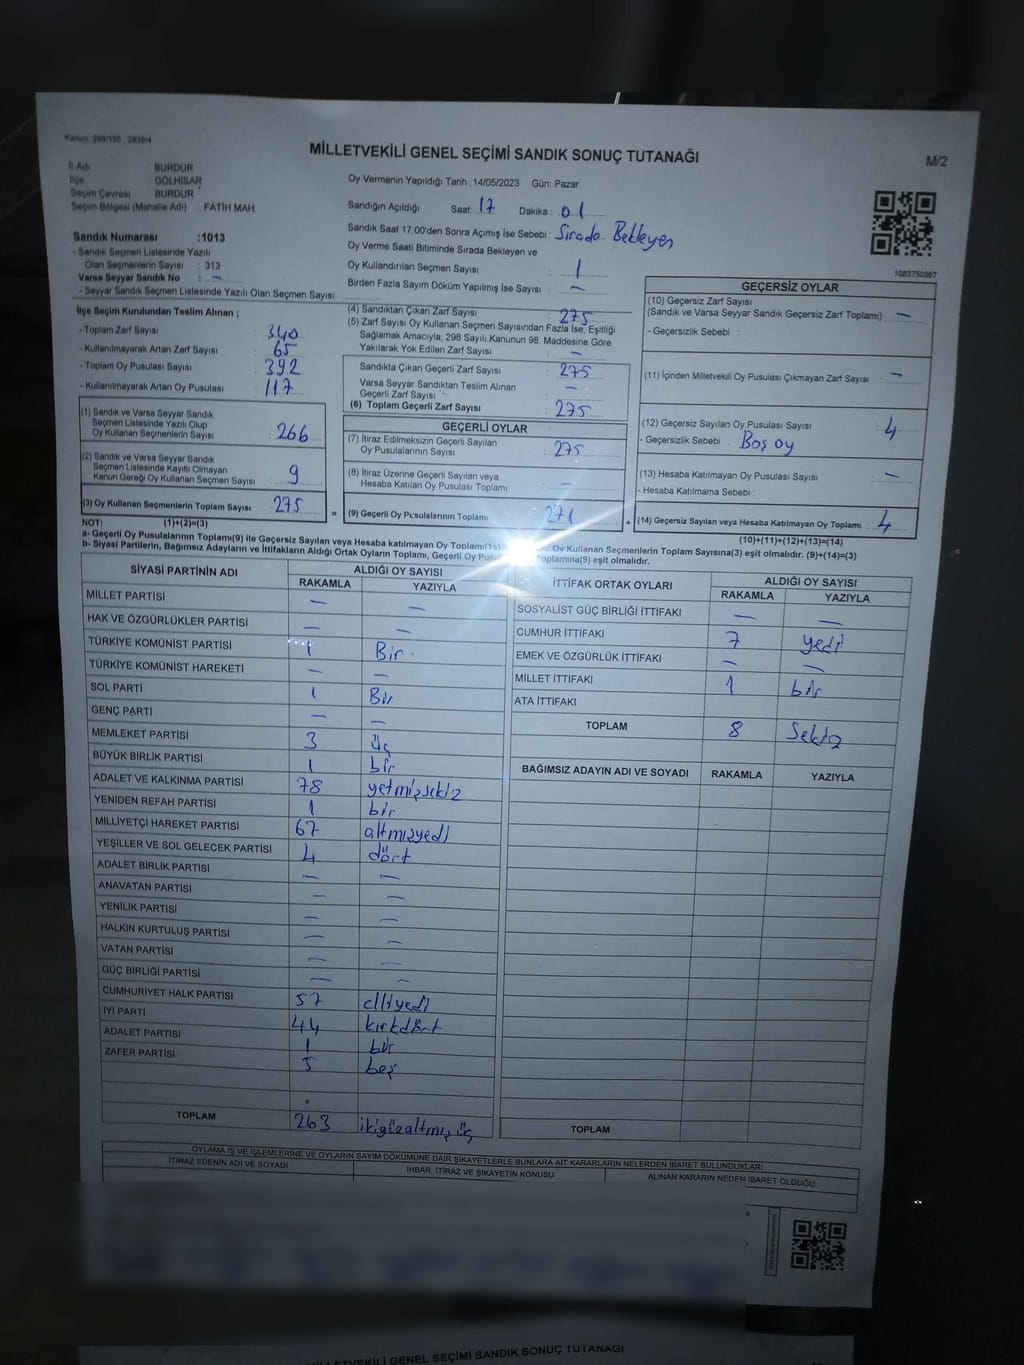 Kanun: 298/105 , 2839/4
MİLLETVEKİLİ GENEL SEÇİMİ SANDIK SONUÇ TUTANAĞI
M/2
İl Adı : BURDUR
İlçe : GÖLHİSAR
Seçim Çevresi : BURDUR
Seçim Bölgesi (Mahalle Adı) : FATİH MAH
Sandık Numarası :1013
- Sandık Seçmen Listesinde Yazılı
Olan Seçmenlerin Sayısı : 313
Varsa Seyyar Sandık No : —
- Seyyar Sandık Seçmen Listesinde Yazılı Olan Seçmen Sayısı:
Oy Vermenin Yapıldığı Tarih :14/05/2023 Gün: Pazar
Sandığın Açıldığı Saat: 17 Dakika : 01
Sandık Saat 17.00'den Sonra Açımış İse Sebebi : Sırada Bekleyen
Oy Verme Saati Bitiminde Sırada Bekleyen ve
Oy Kullandırılan Seçmen Sayısı : 1
Birden Fazla Sayım Döküm Yapılmış İse Sayısı : —
1083750367
İlçe Seçim Kurulundan Teslim Alınan ;
- Toplam Zarf Sayısı : 340
- Kullanılmayarak Artan Zarf Sayısı : 65
- Toplam Oy Pusulası Sayısı : 392
- Kullanılmayarak Artan Oy Pusulası : 117
(1) Sandık ve Varsa Seyyar Sandık
Seçmen Listesinde Yazılı Olup
Oy Kullanan Seçmenlerin Sayısı : 266
(2) Sandık ve Varsa Seyyar Sandık
Seçmen Listesinde Kayıtlı Olmayan
Kanun Gereği Oy Kullanan Seçmen Sayısı : 9
(3) Oy Kullanan Seçmenlerin Toplam Sayısı : 275
(4) Sandıktan Çıkan Zarf Sayısı : 275
(5) Zarf Sayısı Oy Kullanan Seçmen Sayısından Fazla İse, Eşitliği
Sağlamak Amacıyla; 298 Sayılı Kanunun 98. Maddesine Göre
Yakılarak Yok Edilen Zarf Sayısı : —
Sandıkta Çıkan Geçerli Zarf Sayısı : 275
Varsa Seyyar Sandıktan Teslim Alınan
Geçerli Zarf Sayısı : —
(6) Toplam Geçerli Zarf Sayısı : 275
GEÇERLİ OYLAR
(7) İtiraz Edilmeksizin Geçerli Sayılan
Oy Pusulalarının Sayısı : 275
(8) İtiraz Üzerine Geçerli Sayılan veya
Hesaba Katılan Oy Pusulası Toplamı : —
= (9) Geçerli Oy Pusulalarının Toplamı : 271
GEÇERSİZ OYLAR
(10) Geçersiz Zarf Sayısı
(Sandık ve Varsa Seyyar Sandık Geçersiz Zarf Toplamı) : —
- Geçersizlik Sebebi :
(11) İçinden Milletvekili Oy Pusulası Çıkmayan Zarf Sayısı : —
(12) Geçersiz Sayılan Oy Pusulası Sayısı : 4
- Geçersizlik Sebebi : Boş oy
(13) Hesaba Katılmayan Oy Pusulası Sayısı : —
- Hesaba Katılmama Sebebi :
+ (14) Geçersiz Sayılan veya Hesaba Katılmayan Oy Toplamı : 4
NOT: (1)+(2)=(3)
(10)+(11)+(12)+(13)=(14)
a- Geçerli Oy Pusulalarının Toplamı(9) ile Geçersiz Sayılan veya Hesaba katılmayan Oy Toplamı(14) Oy Kullanan Seçmenlerin Toplam Sayısına(3) eşit olmalıdır. (9)+(14)=(3)
b- Siyasi Partilerin, Bağımsız Adayların ve İttifakların Aldığı Ortak Oyların Toplamı, Geçerli Oy Toplamına(9) eşit olmalıdır.
SİYASİ PARTİNİN ADI ALDIĞI OY SAYISI
RAKAMLA YAZIYLA
MİLLET PARTİSİ — —
HAK VE ÖZGÜRLÜKLER PARTİSİ — —
TÜRKİYE KOMÜNİST PARTİSİ 1 Bir
TÜRKİYE KOMÜNİST HAREKETİ — —
SOL PARTİ 1 Bir
GENÇ PARTİ — —
MEMLEKET PARTİSİ 3 üç
BÜYÜK BİRLİK PARTİSİ 1 bir
ADALET VE KALKINMA PARTİSİ 78 yetmişsekiz
YENİDEN REFAH PARTİSİ 1 bir
MİLLİYETÇİ HAREKET PARTİSİ 67 altmışyedi
YEŞİLLER VE SOL GELECEK PARTİSİ 4 dört
ADALET BİRLİK PARTİSİ — —
ANAVATAN PARTİSİ — —
YENİLİK PARTİSİ — —
HALKIN KURTULUŞ PARTİSİ — —
VATAN PARTİSİ — —
GÜÇ BİRLİĞİ PARTİSİ — —
CUMHURİYET HALK PARTİSİ 57 elliyedi
İYİ PARTİ 44 kırkdört
ADALET PARTİSİ 1 bir
ZAFER PARTİSİ 5 beş
TOPLAM 263 ikiyüzaltmış üç
İTTİFAK ORTAK OYLARI ALDIĞI OY SAYISI
RAKAMLA YAZIYLA
SOSYALİST GÜÇ BİRLİĞİ İTTİFAKI — —
CUMHUR İTTİFAKI 7 yedi
EMEK VE ÖZGÜRLÜK İTTİFAKI — —
MİLLET İTTİFAKI 1 bir
ATA İTTİFAKI
TOPLAM 8 Sekiz
BAĞIMSIZ ADAYIN ADI VE SOYADI RAKAMLA YAZIYLA
TOPLAM
OYLAMA İŞ VE İŞLEMLERİNE VE OYLARIN SAYIM DÖKÜMÜNE DAİR ŞİKAYETLERLE BUNLARA AİT KARARLARIN NELERDEN İBARET BULUNDUKLARI
İTİRAZ EDENİN ADI VE SOYADI İHBAR, İTİRAZ VE ŞİKAYETİN KONUSU ALINAN KARARIN NEDEN İBARET OLDUĞU
MİLLETVEKİLİ GENEL SEÇİMİ SANDIK SONUÇ TUTANAĞI